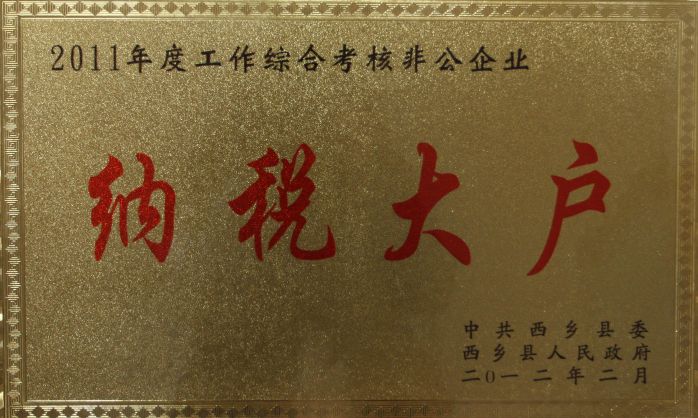 2011年度工作综合考核非公企业
纳税大户
中共西乡县委
西乡县人民政府
二0一二年二月